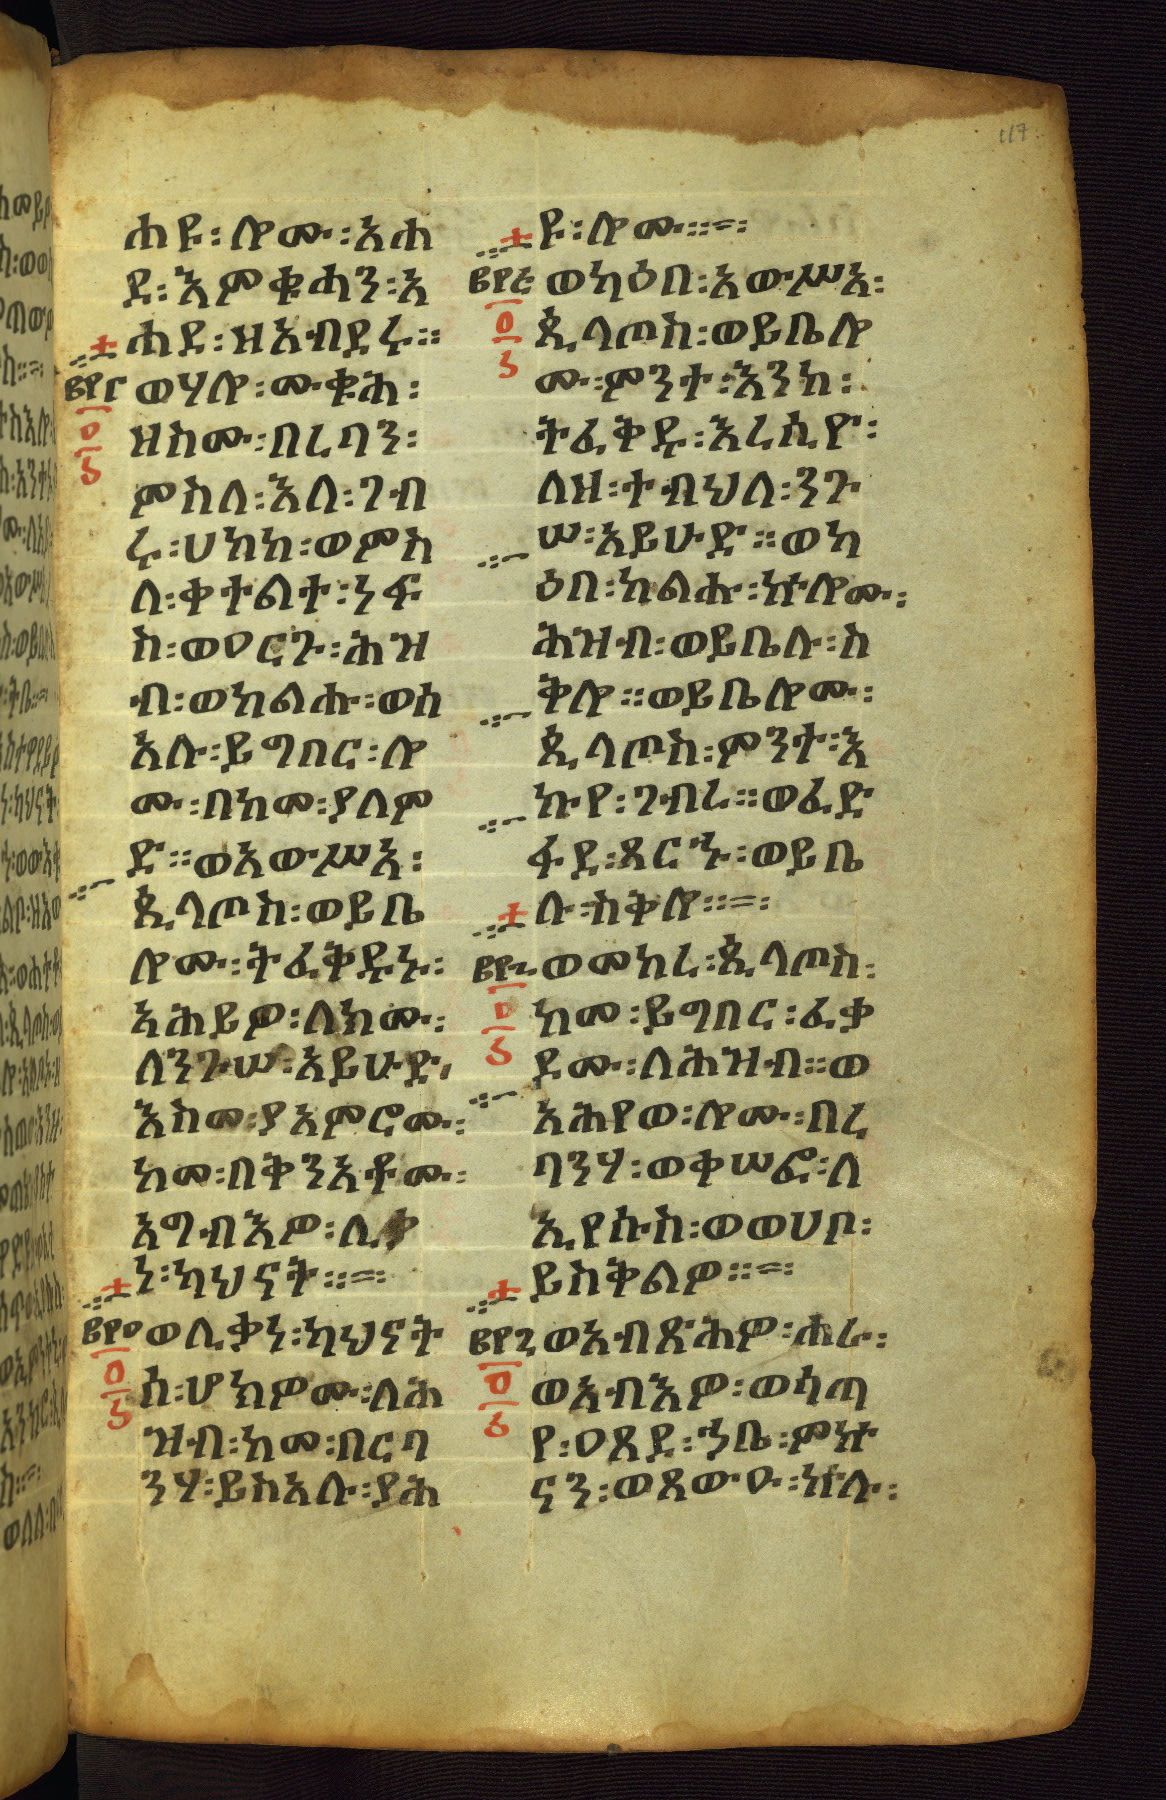 ሐዩ፡ሎሙ፡አሐ
ደ፡እምቁሓን፡አ
ሐደ፡ዘአብደሩ።
ወሃሎ፡ሙቁሕ፡
ዘስሙ፡በረባን፡
ምስለ፡እለ፡ገብ
ሩ፡ሀከከ፡ወምስ
ለ፡ቀተልተ፡ነፍ
ስ፡ወዐርጉ፡ሕዝ
ብ፡ወከልሑ፡ወሰ
አሉ፡ይግበር፡ሎ
ሙ፡በከመ፡ያለም
ድ።ወአውሥአ፡
ጲላጦስ፡ወይቤ
ሎሙ፡ትፈቅዱኑ፡
አሕይዎ፡ለክሙ፡
ለንጉሠ፡አይሁድ፡
እስመ፡ያአምሮሙ፡
ከመ፡በቅንአቶሙ፡
አግብእዎ፡ሊቃ
ነ፡ካህናት።=፡
ወሊቃነ፡ካህናት
ሰ፡ሆክዎሙ፡ለሕ
ዝብ፡ከመ፡በርባ
ንሃ፡ይስአሉ፡ያሕ
ዩ፡ሎሙ።=፡
ወካዕበ፡አውሥአ፡
ጲላጦስ፡ወይቤሎ
ሙ፡ምንተ፡እንከ፡
ትፈቅዱ፡እረሲዮ፡
ለዘ፡ተብህለ፡ንጉ
ሠ፡አይሁድ።ወካ
ዕበ፡ከልሑ፡ኵሎሙ፡
ሕዝብ፡ወይቤሉ፡ስ
ቅሎ።ወይቤሎሙ፡
ጲላጦስ፡ምንተ፡እ
ኩየ፡ገብረ።ወፈድ
ፋደ፡ጸርኁ፡ወይቤ
ሉ፡ስቅሎ።=፡
ወመከረ፡ጲላጦስ፡
ከመ፡ይግበር፡ፈቃ
ደሙ፡ለሕዝብ።ወ
አሕየወ፡ሎሙ፡በረ
ባንሃ፡ወቀሠፎ፡ለ
ኢየሱስ፡ወወሀቦ፡
ይስቅልዎ።=፡
ወአብጽሕዎ፡ሐራ፡
ወአብእዎ፡ወሳጢ
የ፡ዐጸደ፡ኀቤ፡ምኵ
ናን፡ወጸውዑ፡ኵሉ፡